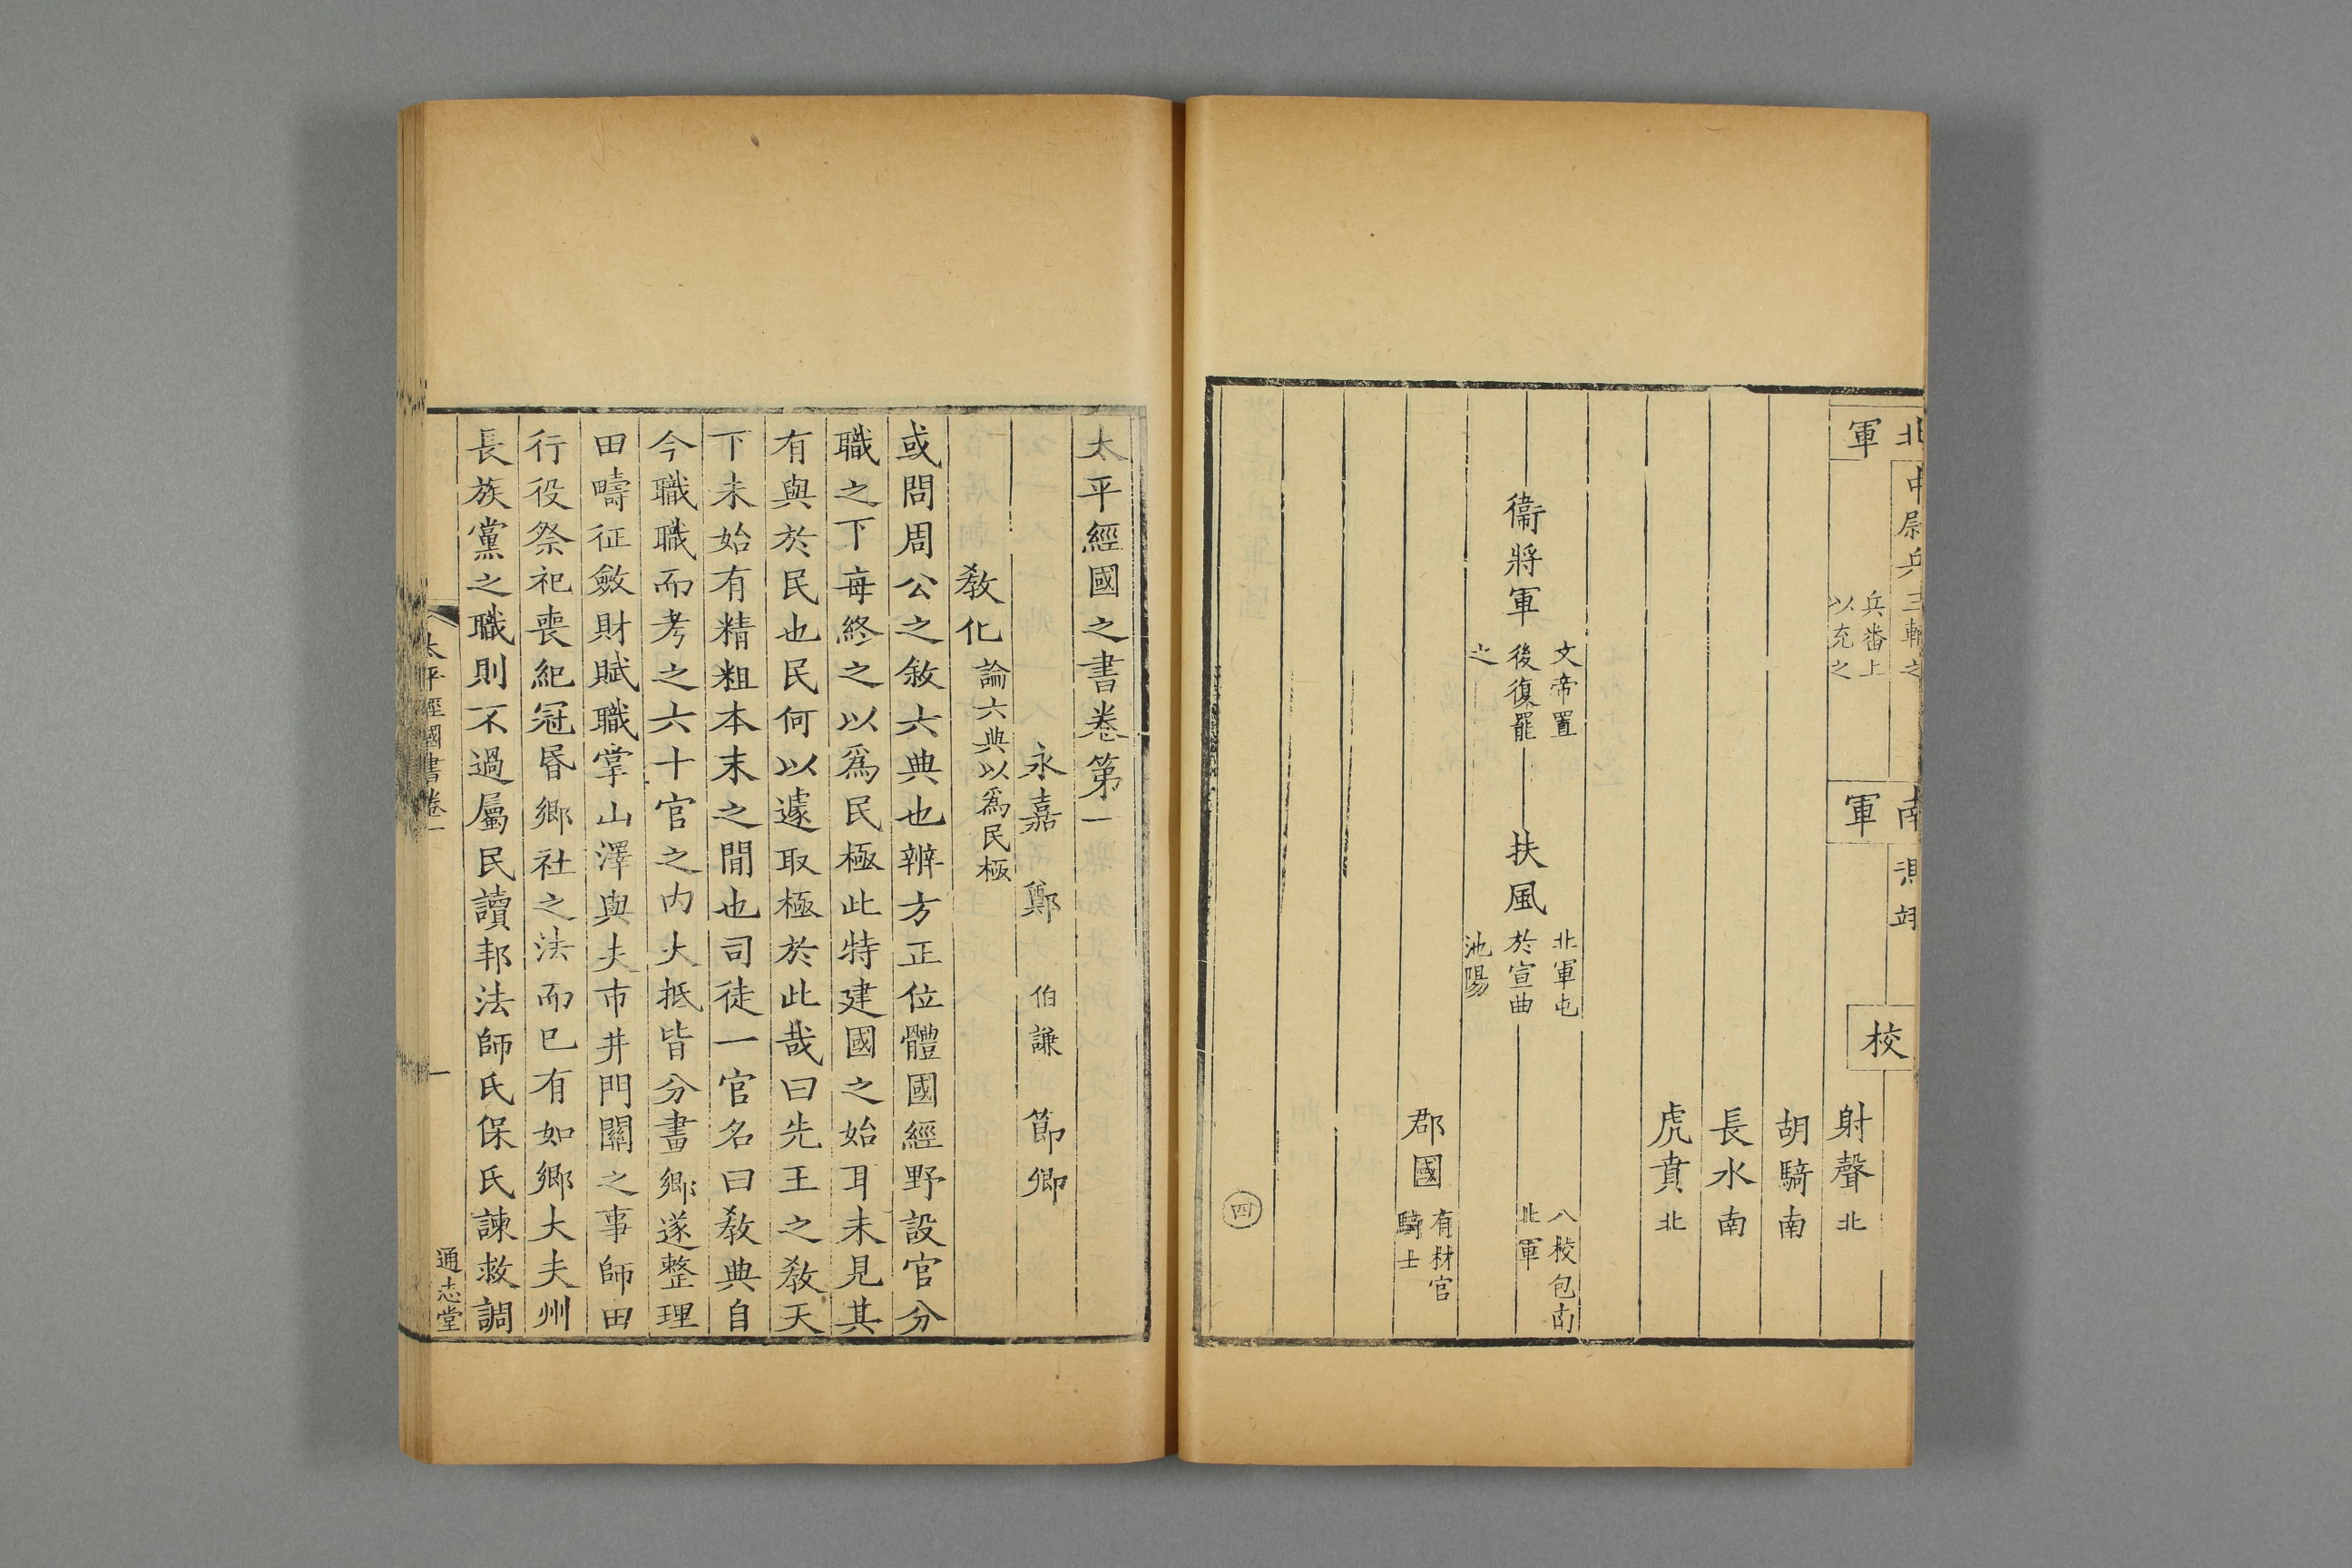 北軍
中尉兵三輔之
兵番上
以充之
南軍
校
射聲北
胡騎南
長水南
虎賁北
衞將軍
文帝置
後復罷
之
扶風
北軍屯
於宣曲
池陽
八校包南
北軍
郡國
有材官
騎士
四
太平經國之書卷第一
永嘉鄭伯謙節卿
敎化論六典以爲民極
或問周公之敘六典也辨方正位體國經野設官分
職之下每終之以爲民極此特建國之始耳未見其
有與於民也民何以遽取極於此哉曰先王之敎天
下未始有精粗本末之閒也司徒一官名曰敎典自
今職職而考之六十官之內大抵皆分畫鄉遂整理
田疇征斂財賦職掌山澤與夫市井門關之事師田
行役祭祀喪紀冠昬鄉社之法而巳有如鄉大夫州
長族黨之職則不過屬民讀邦法師氏保氏諫救調
太平經國書卷一
一
通志堂